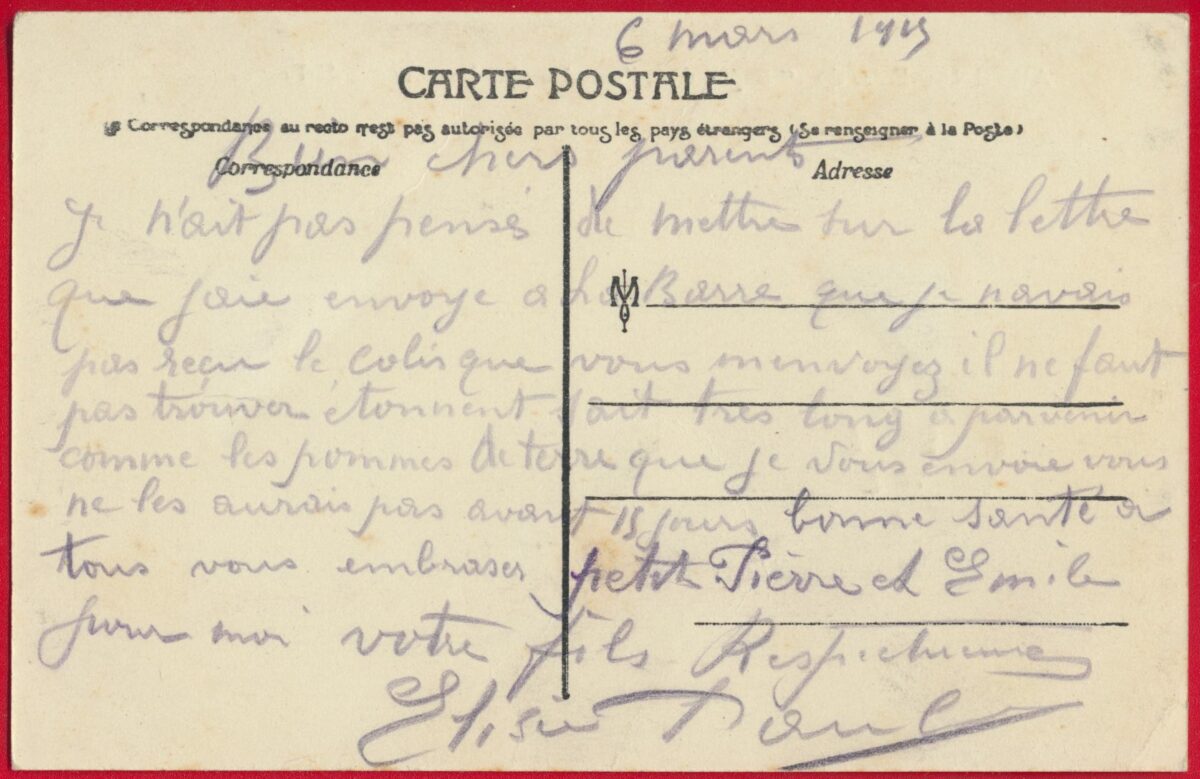 6 mars 1915
CARTE POSTALE
La Correspondance au recto n'est pas autorisée par tous les pays étrangers (Se renseigner à la Poste)
Correspondance
Adresse
Bien chers parents
Je n'ait pas pensés de mettre sur la lettre
que jaie envoye a La Barre que je navais
pas reçu le colis que vous menvoyez il ne faut
pas trouver étonnent sait tres long a parvenir
comme les pommes de terre que je vous envoie vous
ne les aurais pas avant 15 jours bonne santé a
tous vous embraser petit Pièrre et Emile
pour moi votre fils
Paul